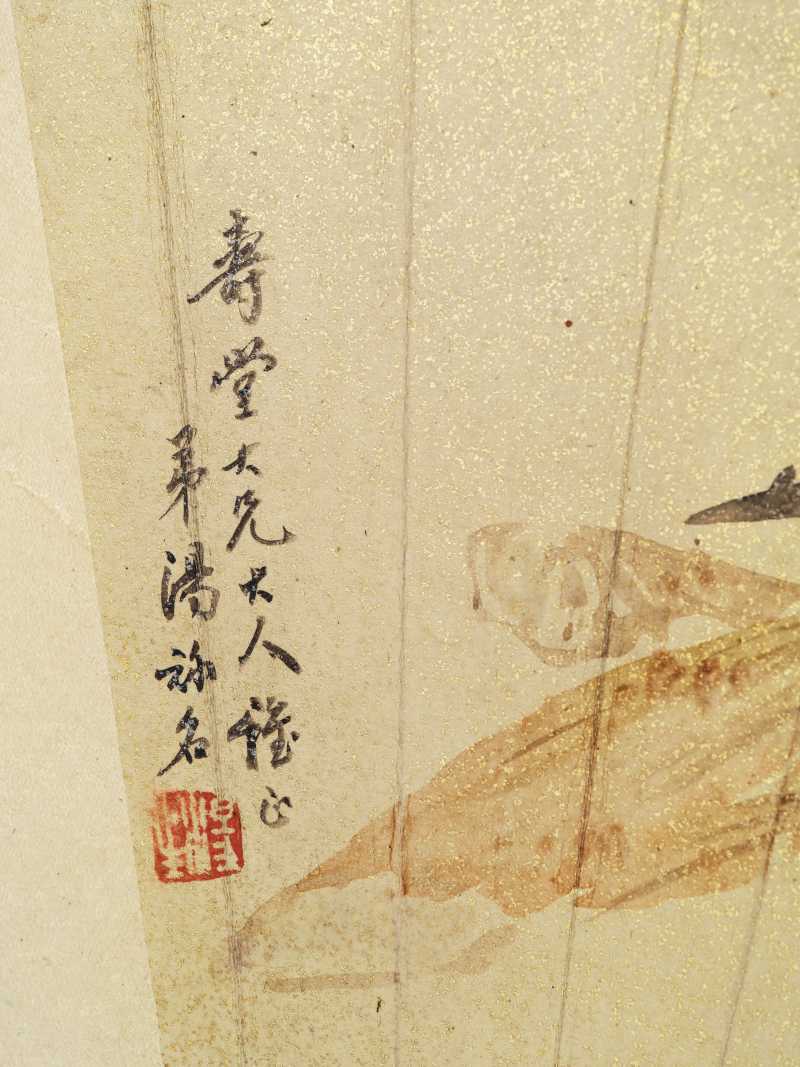 壽堂大兄大人雅正
弟湯祿名